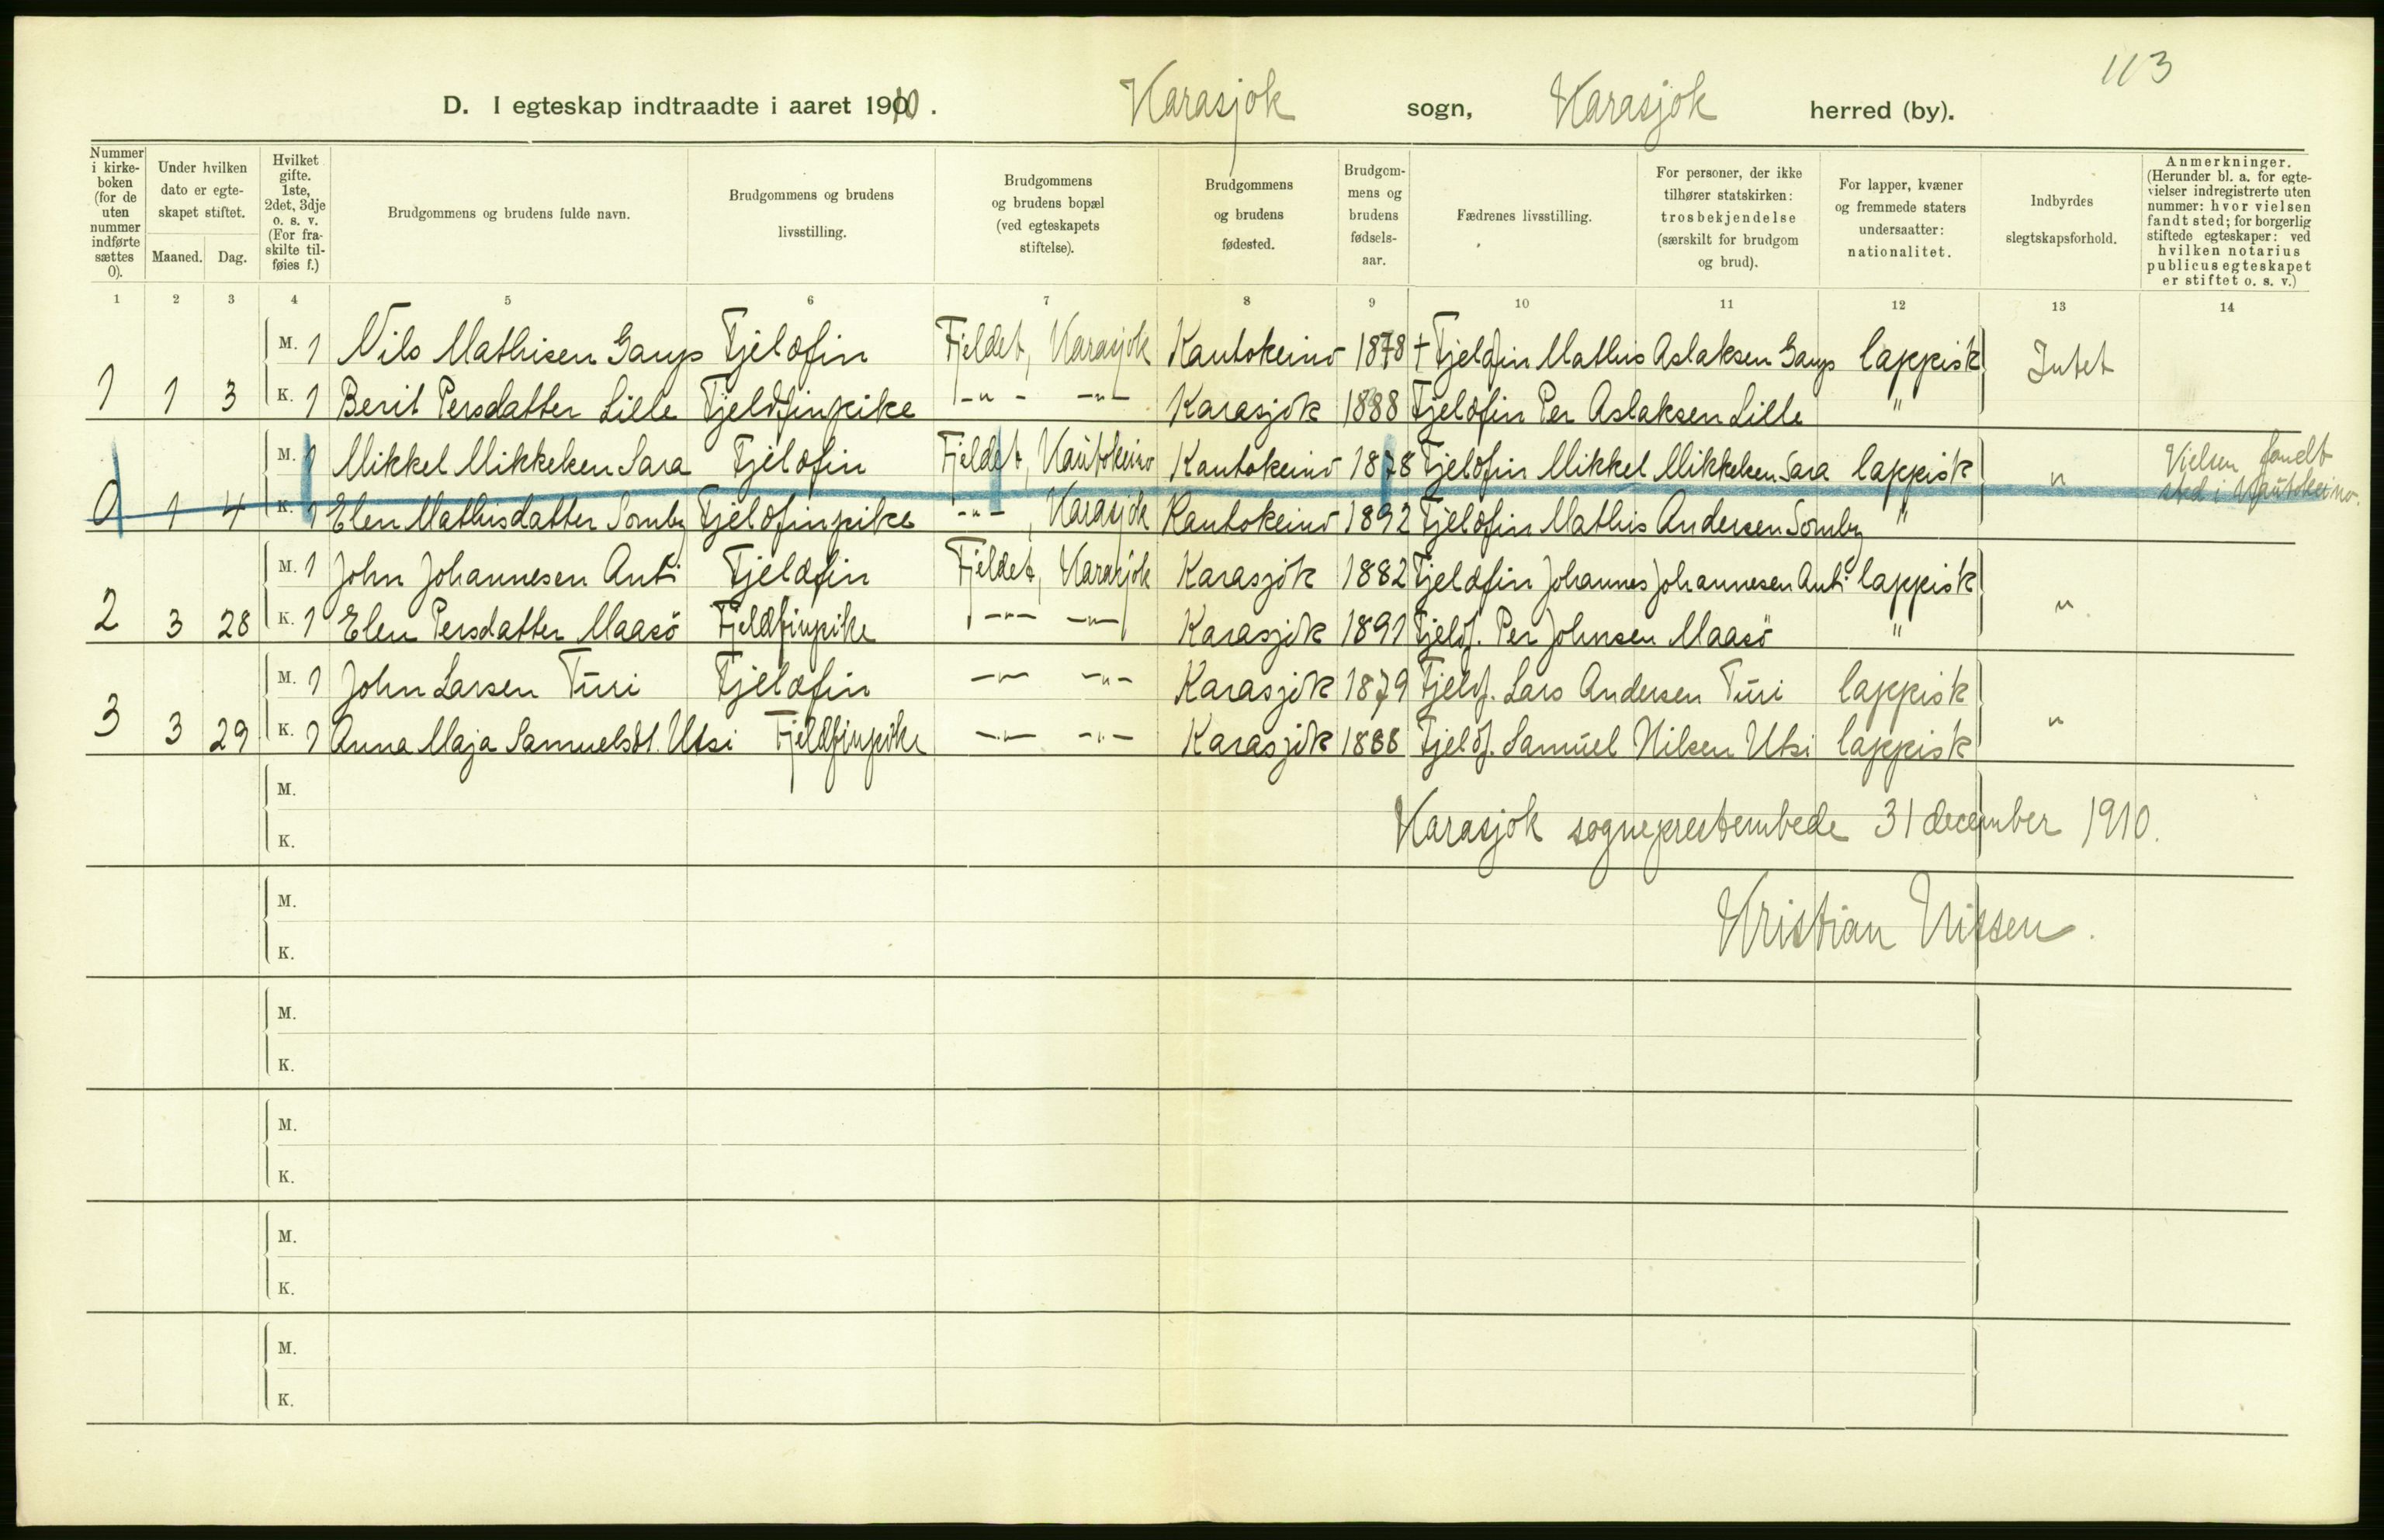 113
D. I egteskap indtraadte i aaret 1910. Karasjok sogn, Karasjok herred (by).
Nummer i kirkeboken (for de uten nummer indførte sættes 0).
Under hvilken dato er egteskapet stiftet.
Maaned. Dag.
Hvilket gifte. 1ste, 2det, 3dje o. s. v. (For fraskilte tilføies f.)
Brudgommens og brudens fulde navn.
Brudgommens og brudens livsstilling.
Brudgommens og brudens bopæl (ved egteskapets stiftelse).
Brudgommens og brudens fødested.
Brudgommens og brudens fødselsaar.
Fædrenes livsstilling.
For personer, der ikke tilhører statskirken: trosbekjendelse (særskilt for brudgom og brud).
For lapper, kvæner og fremmede staters undersaatter: nationalitet.
Indbyrdes slegtskapsforhold.
Anmerkninger. (Herunder bl. a. for egtevielser indregistrerte uten nummer: hvor vielsen fandt sted; for borgerlig stiftede egteskaper: ved hvilken notarius publicus egteskapet er stiftet o. s. v.)
1 2 3 4 5 6 7 8 9 10 11 12 13 14
M. 1 Nils Mathisen Gaup Fjeldfin Fjeldet, Karasjok Kautokeino 1878 + Fjeldfin Mathis Aslaksen Gaup lappisk Intet
1 1 3 K. 1 Berit Persdatter Lille Fjeldfinpike -"- -"- Karasjok 1888 Fjeldfin Per Aslaksen Lille "
M. 1 Mikkel Mikkelsen Sara Fjeldfin Fjeldet, Kautokeino Kautokeino 1878 Fjeldfin Mikkel Mikkelsen Sara lappisk " Vielsen fandt
0 1 4 K. 1 Elen Mathisdatter Somby Fjeldfinpike -"-, Karasjok Kautokeino 1892 Fjeldfin Mathis Andersen Somby " sted i Kautokeino.
M. 1 John Johannesen Anti Fjeldfin Fjeldet, Karasjok Karasjok 1882 Fjeldfin Johannes Johannesen Anti lappisk "
2 3 28 K. 1 Elen Persdatter Maasö Fjeldfinpike -"- -"- Karasjok 1891 Fjeldf. Per Johnsen Maasö "
M. 1 John Larsen Turi Fjeldfin -"- -"- Karasjok 1879 Fjeldf. Lars Andersen Turi lappisk "
3 3 29 K. 1 Anna Maja Samuelsdt. Utsi Fjeldfinpike -"- -"- Karasjok 1888 Fjeldf. Samuel Nilsen Utsi lappisk
M.
Karasjok sogneprestembede 31 december 1910.
K.
M.
Kristian Nissen.
K.
M.
K.
M.
K.
M.
K.
M.
K.